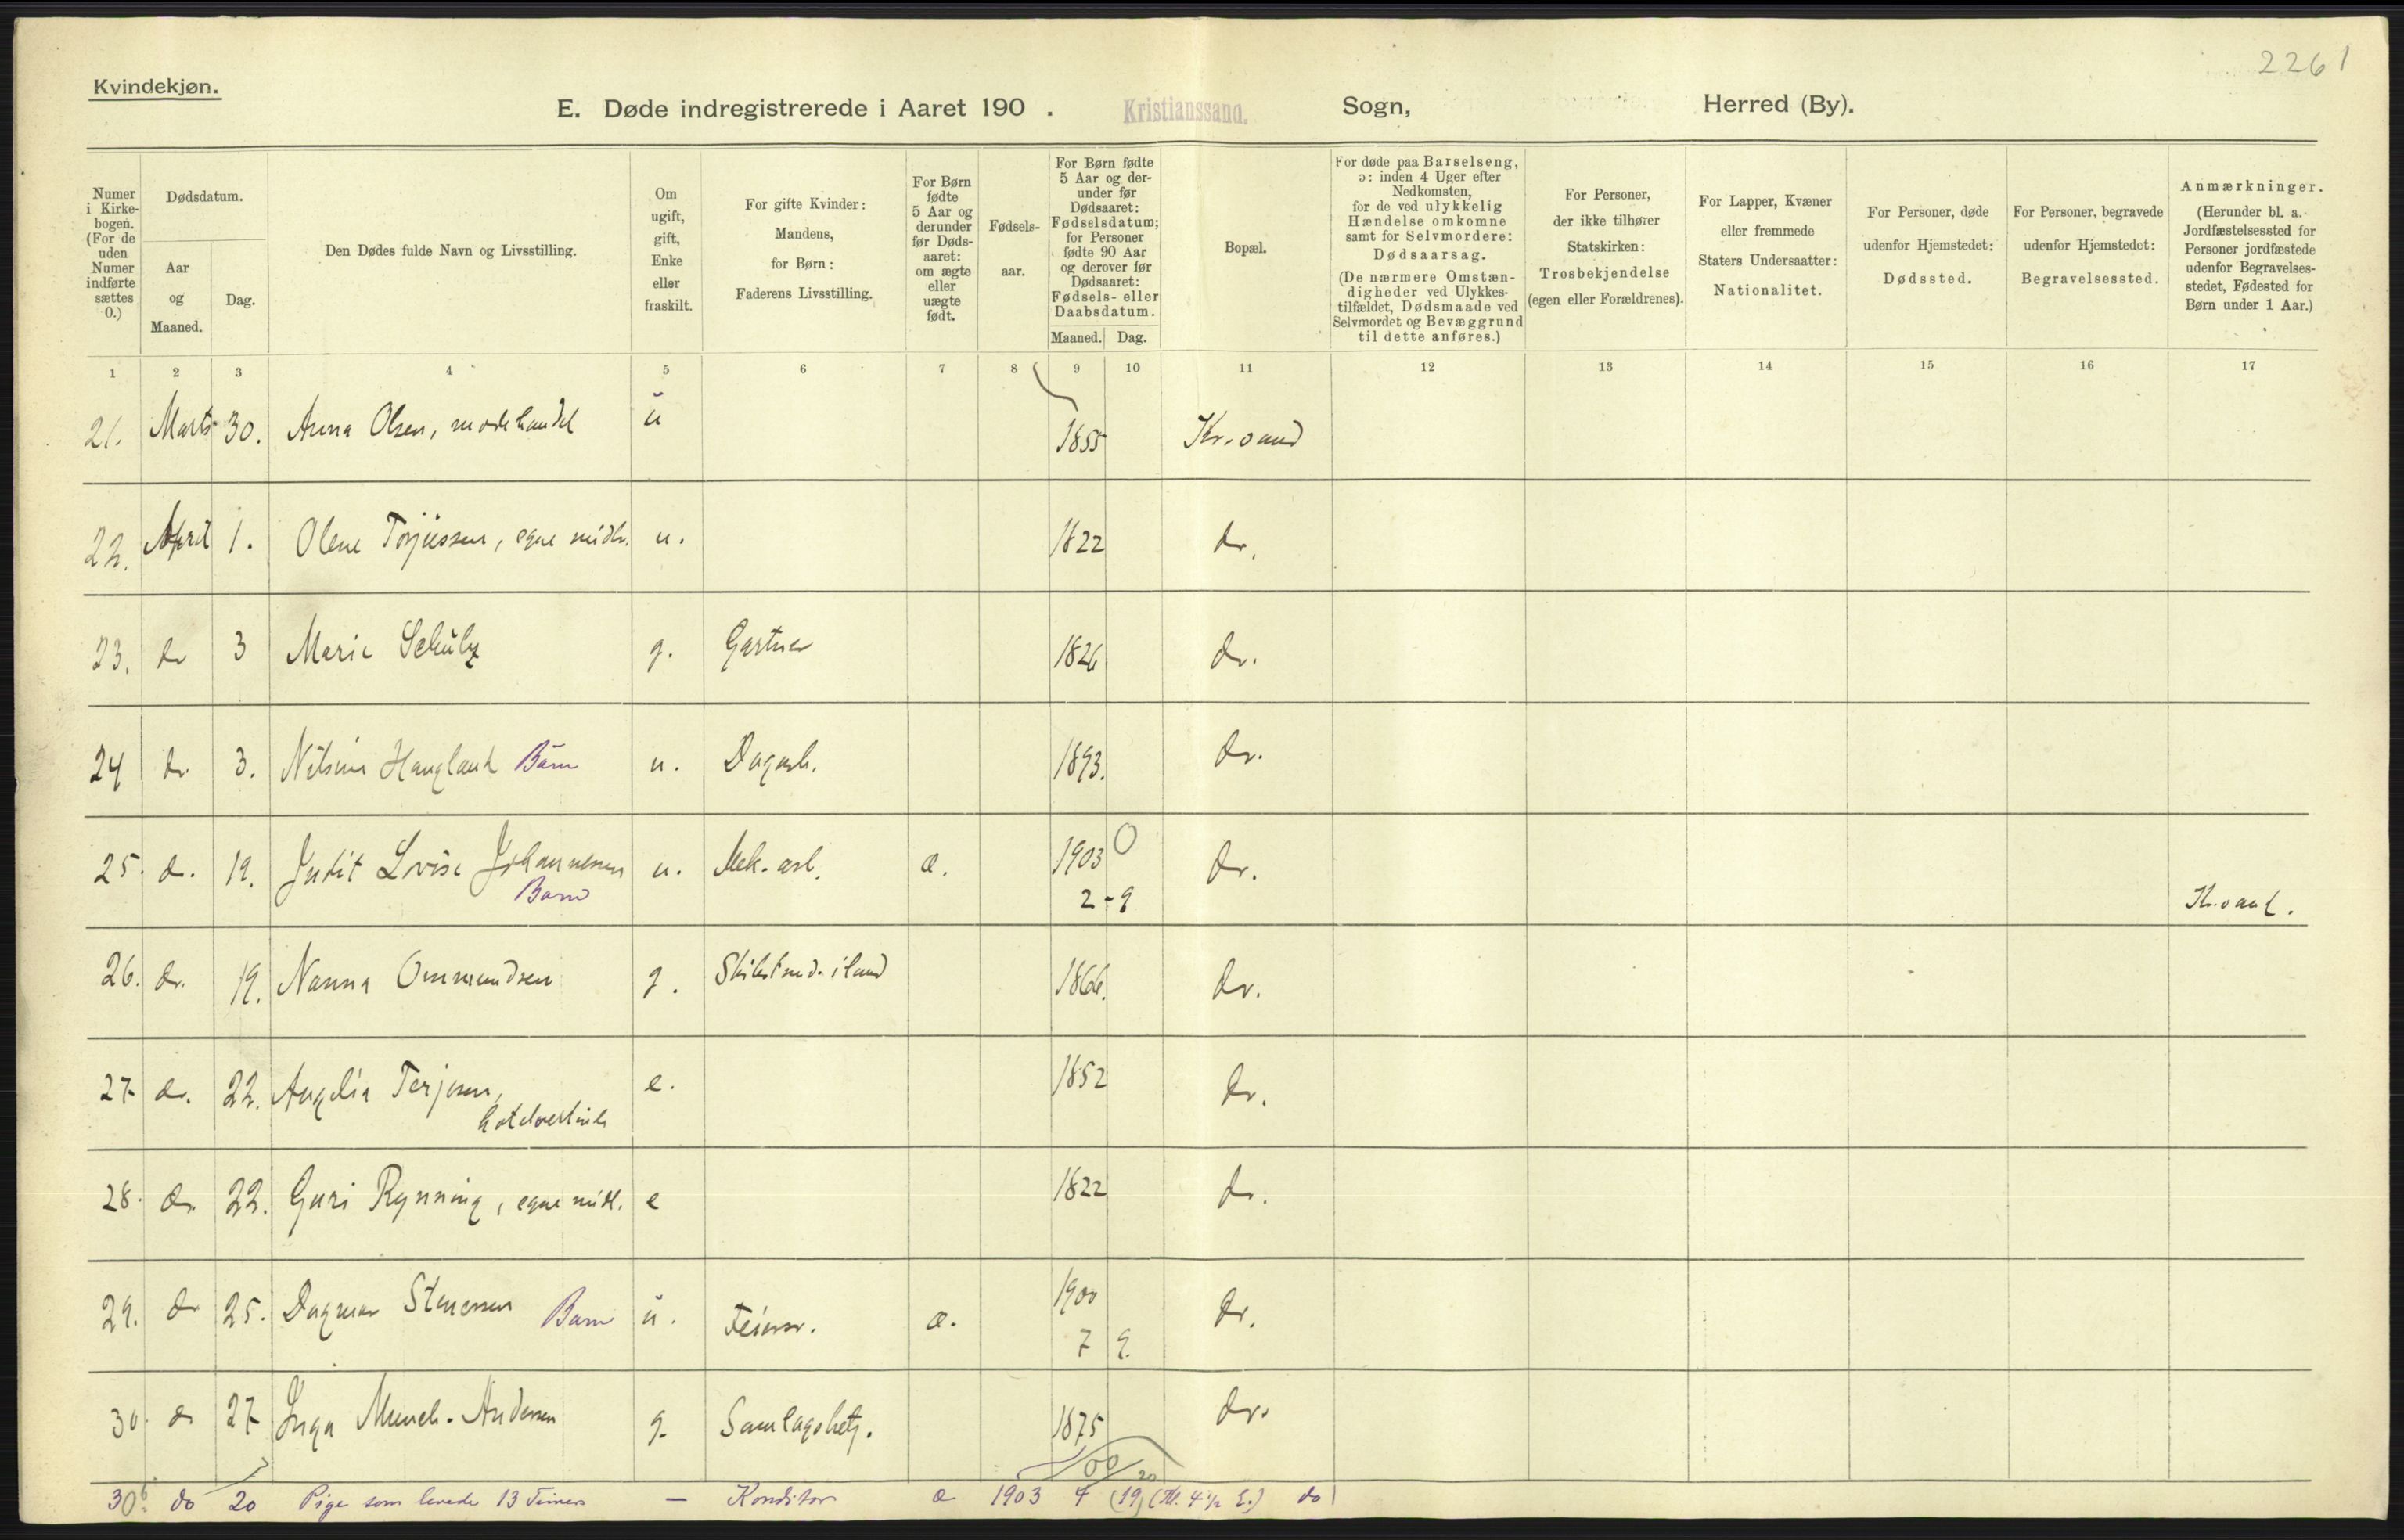 2261
Kvindekjøn.
E. Døde indregistrerede i Aaret 190 . Kristianssand. Sogn, Herred (By).
Numer i Kirke-bogen. (For de uden Numer indførte sættes 0.)
Dødsdatum.
Aar og Maaned.
Dag.
Den Dødes fulde Navn og Livsstilling.
Om ugift, gift, Enke eller fraskilt.
For gifte Kvinder: Mandens, for Børn: Faderens Livsstilling.
For Børn fødte 5 Aar og derunder før Døds-aaret: om ægte eller uægte født.
Fødsels-aar.
For Børn fødte 5 Aar og der-under før Dødsaaret: Fødselsdatum; for Personer fødte 90 Aar og derover før Dødsaaret: Fødsels- eller Daabsdatum.
Maaned. Dag.
Bopæl.
For døde paa Barselseng, ɔ: inden 4 Uger efter Nedkomsten, for de ved ulykkelig Hændelse omkomne samt for Selvmordere: Dødsaarsag.
(De nærmere Omstæn-digheder ved Ulykkes-tilfældet, Dødsmaade ved Selvmordet og Bevæggrund til dette anføres.)
For Personer, der ikke tilhører Statskirken: Trosbekjendelse (egen eller Forældrenes).
For Lapper, Kvæner eller fremmede Staters Undersaatter: Nationalitet.
For Personer, døde udenfor Hjemstedet: Dødssted.
For Personer, begravede udenfor Hjemstedet: Begravelsessted.
Anmærkninger. (Herunder bl. a. Jordfæstelsessted for Personer jordfæstede udenfor Begravelses-stedet, Fødested for Børn under 1 Aar.)
1 2 3 4 5 6 7 8 9 10 11 12 13 14 15 16 17
21. Marts 30. Anna Olsen, modehandel u 1855 Kr.sand
22. April 1. Olene Torjussen, egne midl. u. 1822 do.
23. do 3 Marie Schulz g. Gartner 1826 do.
24 do. 3. Nilsine Haugland Barn u. Dagarb. 1893. do.
25. do. 19. Judit Lovise Johannesen u. Mek. arb. æ. 1903 0 do.
Barn 2 - 9 K.sand.
26. do. 19. Nanna Ommundsen g. 1866. do.
27. do. 22. Angelia Terjesen, e. 1852 do.
28. do. 22. Guri Rynning, egne midl. e 1822 do.
29. do 25. Dagmar Stenersen Barn u. Feiersv. æ. 1900 do.
7 9.
30. do 27 Inga Munch-Andersen g. Samlagsbetj. 1875 do.
00 20
30b. do 20 Pige som levede 13 Timer – Konditor æ 1903 4 (19) (Kl. 4 1/2 E.) do